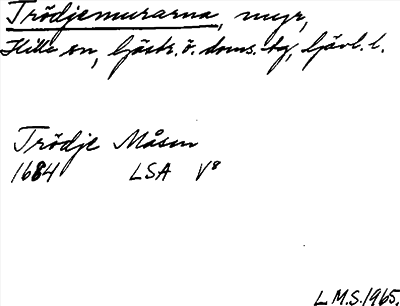 Trödjemurarna, myr,
Hille sn, Gästr. ö. doms. tg, Gävl. l.
Trödje Måsen
1684 LSA V⁸
L M.S. 1965.